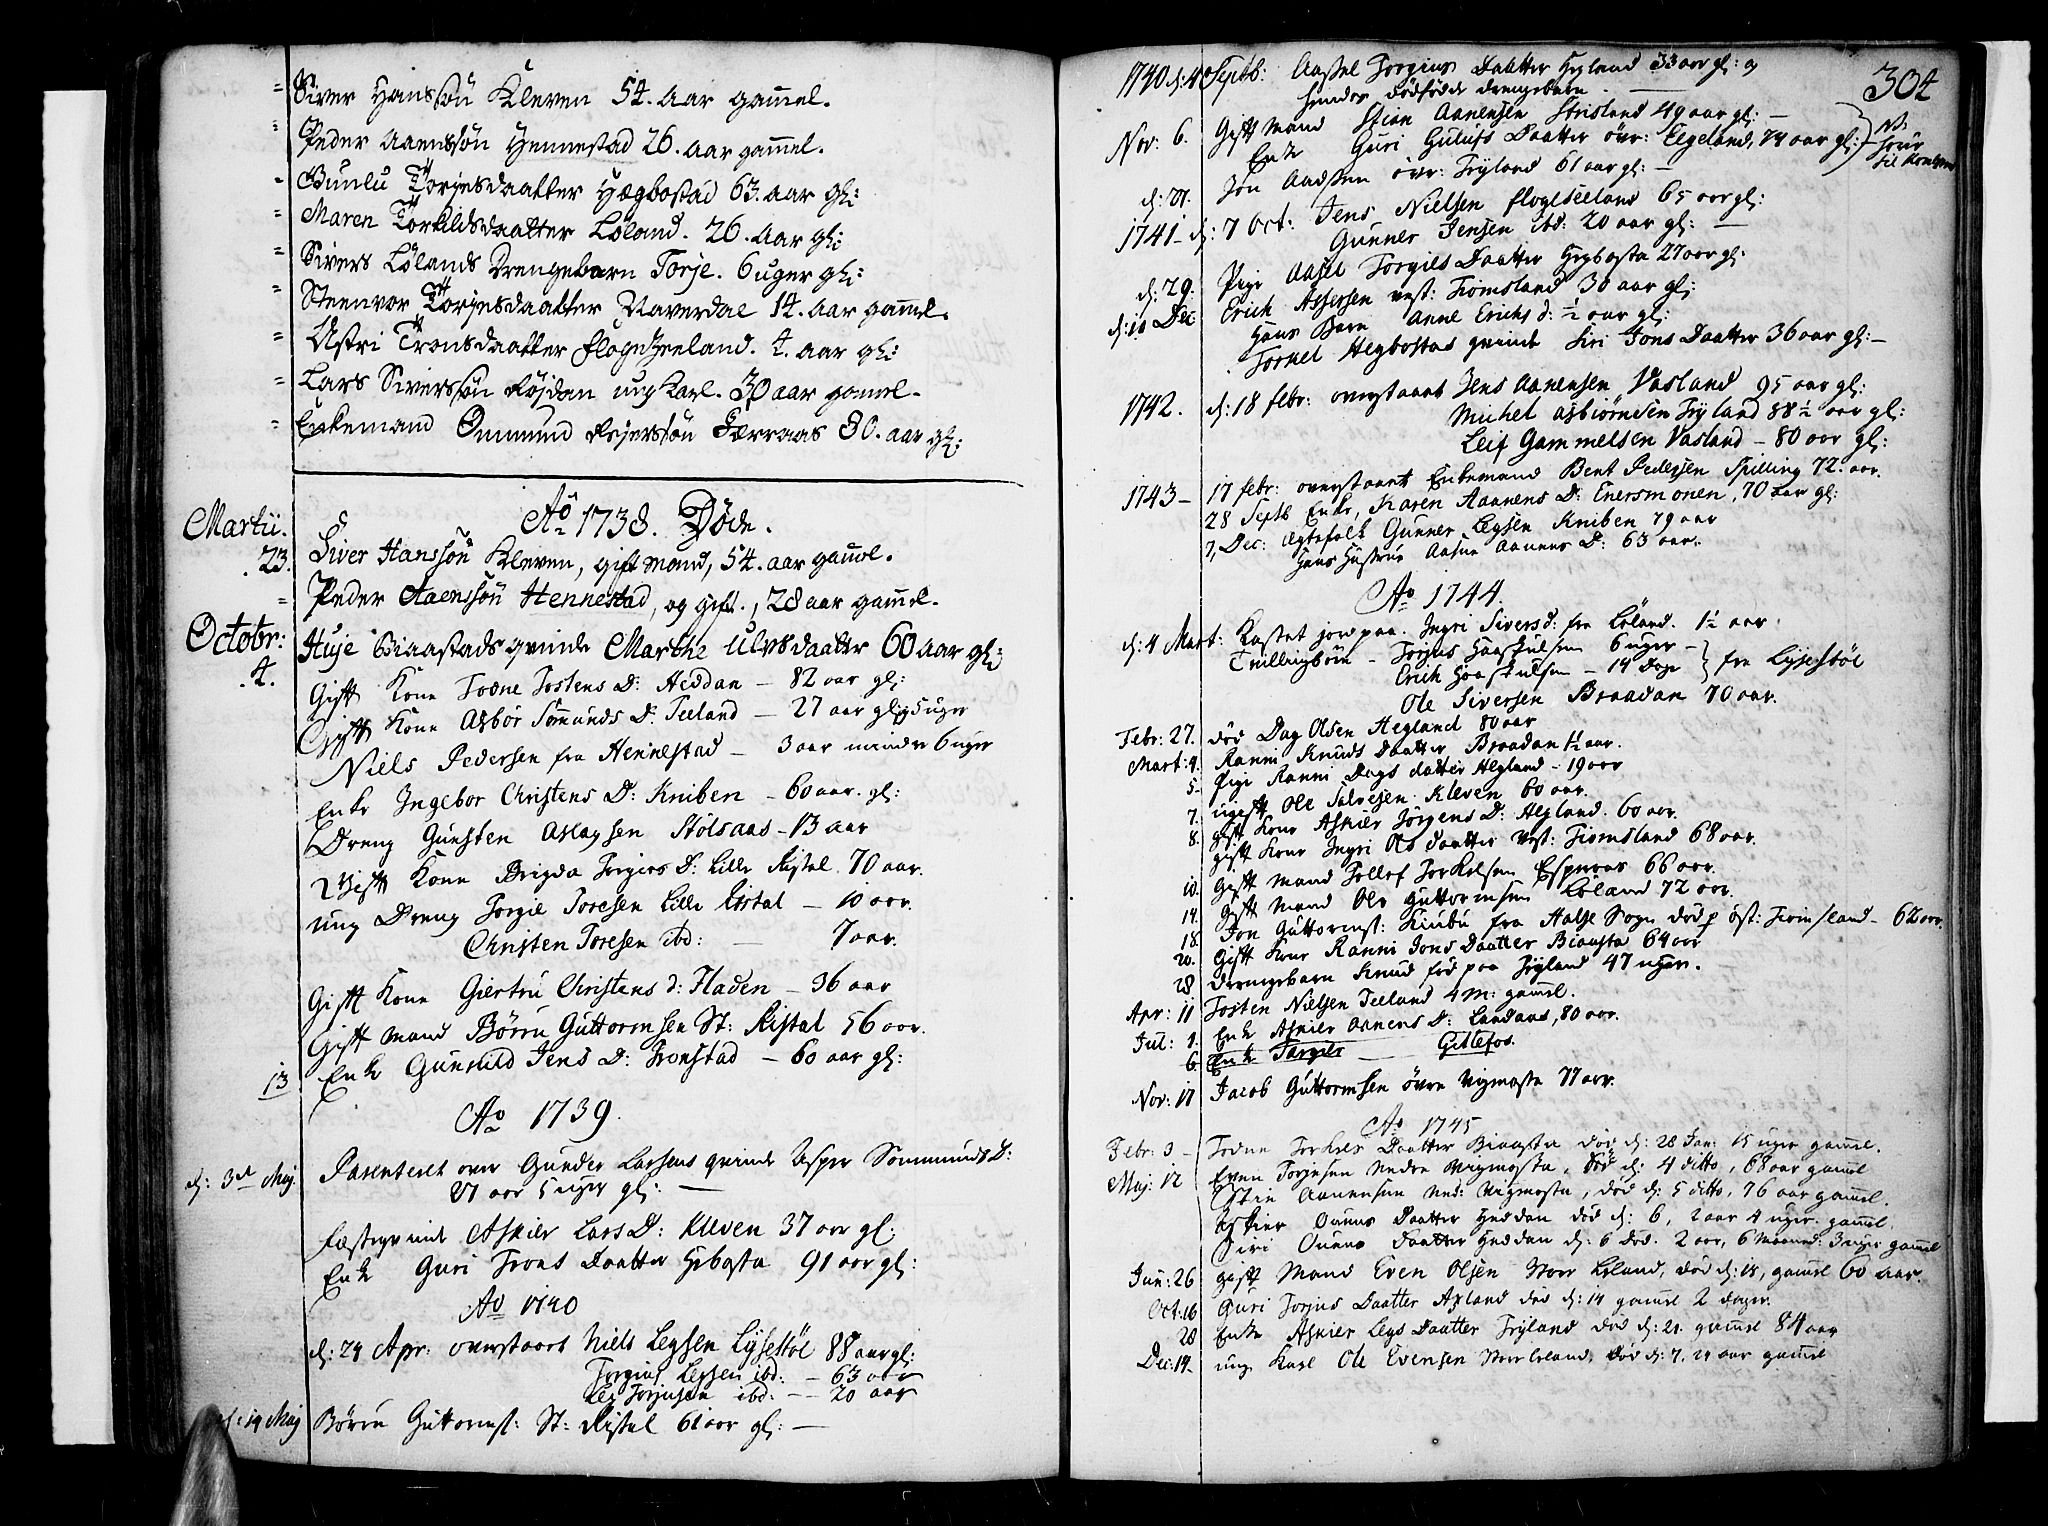 - Siver Hanssøn Kleven 54. Aar gamel.
- Peder Aaenssøn Hennestad 26. Aar gamel.
- Gunlu Torjesdaatter Hægbostad 63. aar gl:
- Maren Torkildsdaatter Löland. 26. Aar gl:
- Sivers Lölands Drengebarn Torje. 6 uger gl:
- Steenvor Torjesdaatter Naverdal 14. Aar gamel.
- Astri Tronsdaatter 4. aar gl:
- Lars Siverssøn ung Karl. 30 aar gamel.
- Enkemand Ommund 80. aar gl:
Ao 1738. Døde.
Martii. 23. Siver Hanssøn Kleven, gift mand, 54. aar gamel.
- Peder Aaenssøn Hennestad, og gift., 28 aar gamel.
Octobr: 4. Huje Biaastads qvinde Marthe Ulvsdaatter 60 aar gl:
Gift Kone Todne Tostens D: Heddan - 82 aar gl:
Gift Kone Asbor Sommunds D: Teeland - 27 aar gl: 5 uger
Niels Pedersen fra Hennestad - 3 aar mindre 6 uger
Enke Ingebor Christens D: Kniben - 60 aar. gl:
Dreng Gunsten Aslagsen Stölsaas - 13 aar
Gift Kone Brigda Torgiers D: Lille Ristal 70 aar.
ung Dreng Torgie Toresen Lille Ristal - 10 aar.
Christen Toresen ibd: - 7 aar.
Gift Kone Giertru Christens d: Fladen - 36 aar
Gift mand Börru Guttormsen St: Ristal 56 aar.
13 Enke Gunhild Jens D: Tronstad - 60 aar gl:
Ao 1739.
d: 3de Maj Parenteret over Gunder Larsens qvinde Asper Sommunds D:
27 aar 5 uger gl: -
Askier Lars D: Kleven 37 aar gl:
Enke Guri Trons Daatter Hegbosta 91 aar gl:
Ao 1740
d: 24 Apr: overstaart Niels Legsen Lyssestöl 88 aar gl:
Torgius Legsen ibd: - 63 aar
Leg Torjussen ibd: - 20 aar
d: 14 Maj Börru Guttormss: St: Ristal 61 aar gl: -
304
1740 d: 4 Septb: Aasel Torgius Daatter Hegland 33 aar gl: og
hendes dödfödde drengebarn -
Nov: 6. Gift Mand Stian Aanensen Strisland 49 aar gl: -
Enke Guri Guluss Daatter övr: Eegeland, 74 aar gl:
d: 27. Jon Aadssen övr: Tryland 61 aar gl: -
1741 - d: 7 Oct: Jens Nielsen 65 aar gl:
Gunner Jensen ibd: 20 aar gl: -
d: 29. Pige Aasel Torgies Daatter Hegbosta 27 aar gl:
d: 10 Dec Erich Assersen vest: Tiomsland 30 aar gl:
hans Barn Anne Erichs d: ½ aar gl:
Torkel Hegbostas qvinde Siri Jons Daatter 36 aar gl: -
1742. d: 18 febr: overstaart Jens Aanensen Vasland 95 aar gl:
Michel Asbiörnsen Tryland 88 ½ aar gl:
Leif Gammelsen Vasland - 80 aar gl:
1743 - 17 febr: overstaart Enkemand Bent Pedersen Spilling 72. aar.
28 Septb Enke, Karen Aanens D: Enersmonen, 70 aar gl:
7, Dec: ægtefolk Gunner Legsen Kniben 79 aar
hans hustrue Aasne Aanens D: 63 aar.
Ao 1744.
d: 4 Mart: Kastet jord paa. Ingri Sivers d: fra Löland. 1½ aar.
Tvillingbörn - Torgus Haaskulsen 6 uger -
Erich Haaskulsen - 14 Dage fra Lysestöl
Ole Siversen Braadan 70 aar.
Febr: 27. död Dag Olsen Hegland 80 aar
Mart: 4. Ranni Knuds Daatter Braadan 1½ aar.
5. Pige Ranni Dags datter Hegland - 19 aar
7. ugift Ole Salvesen Kleven 60 aar.
8. gift Kone Askier Jörgens D: Hegland. 60 aar.
gift Kone Ingri Ols daatter Vest: Tiomsland 68 aar.
10. Gift Mand Tollef Torkelsen 66 aar.
14. Gift Mand Ole Guttormsen Löland 72 aar.
18. Jon Guttormss: fra Halse Sogn död p öst: Tiomsland - 62 aar.
20. Gift Kone Ranni Jons Daatter Biaasta 64 aar
28 drengebarn Knud föd paa Tryland 47 uger.
Apr: 11 Tosten Nielsen Teeland 4 M: gamel.
Jul: 1. Enke Askier Aanens D: Landaas, 80 aar.
6. Enke Torgier - Gillefos.
Nov: 17 Jacob Guttormsen övre Vigmosta 77 aar.
Ao 1745
Febr: 3 - Todne Torkels Daatter Biaasta död d: 28 Jan: 15 uger gamel.
Maj: 12 Even Torjusen Nedre Vigmosta, död d: 4 ditto, 68 aar gamel
Stein Aanensen Ned: Vigmosta, död d: 5 ditto, 76 aar gamel.
Askier Ounus Daatter Heddan död d: 6, 2 aar 4 uger. gamel.
Siri Ounus Daatter Heddan d: 6 död. 2 aar, 6 Maaned: 3 uger gamel
Jun: 26 gift Mand Even Olsen Storr Leland, död d: 18, gamel 60 aar.
Oct: 16 Guri Torjus Daatter Axland död d: 14 gamel 2 dager.
28 Enke Askier Legs Daatter Tryland död d: 21. gamel 84 aar
Dec: 14. ung Karl Ole Evensen Storr Leland, död d: 7, 24 aar gamel